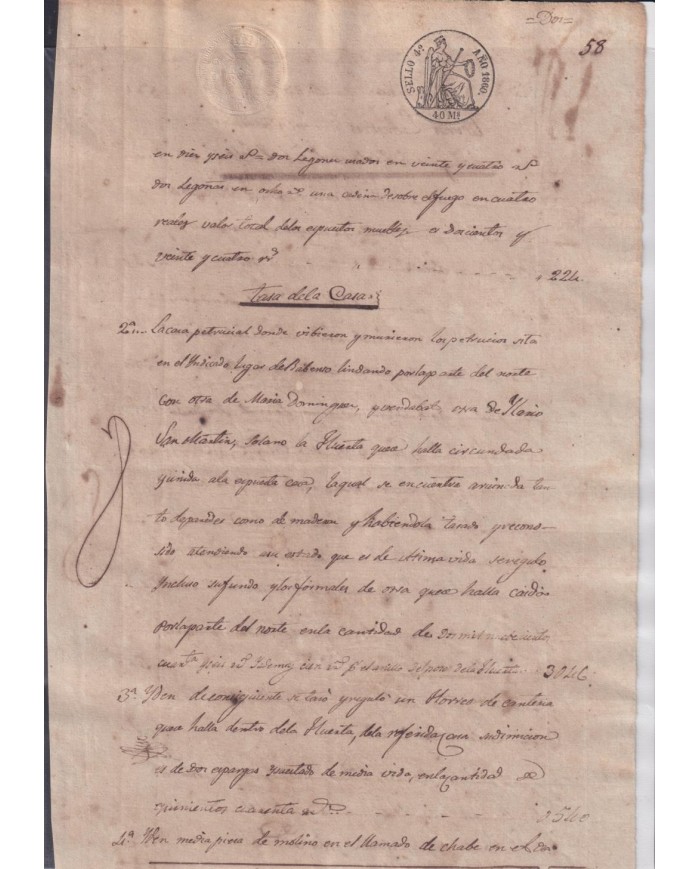 =Dos=
58
SELLO 4º AÑO 1860.
40 Mˢ
en diez y seis rˢ = dos Legones usados en veinte y cuatro rˢ
dos Legonas en ocho rˢ una cadena desobre el fuego en cuatro
reales valor total delos espuestos muebles, es Doscientos y
veinte y cuatro rˢ
224.
Tasa dela Casa
2ª La casa petrucial donde vibieron y murieron los petrucios sita
en el Yndicado lugar de lindando por la parte del norte
con otra de Maria Dominguez, y vendabal otra de
San Martin, Solano la Huerta que se halla circundada
y unida ala espuesta casa, laqual se encuentra arruinada tan
to de paredes como de madera y habiendola tasado y recono-
sido atendiendo asu estado que es de vida se regulo
Yncluso su fundo y los formales de otra que se halla
por la parte del norte enla cantidad de dos mil
cuarenta y seis rˢ 3046.
3ª Yten de consiguiente se tasó y reguló un Horreo de canteria
que se halla dentro dela Huerta, dela referida casa su dimicion
es de dos y estado de media vida, enla cantidad de
quinientos cuarenta rˢ
0540
4ª Yten media pieza de molino en el llamado de chabe en el